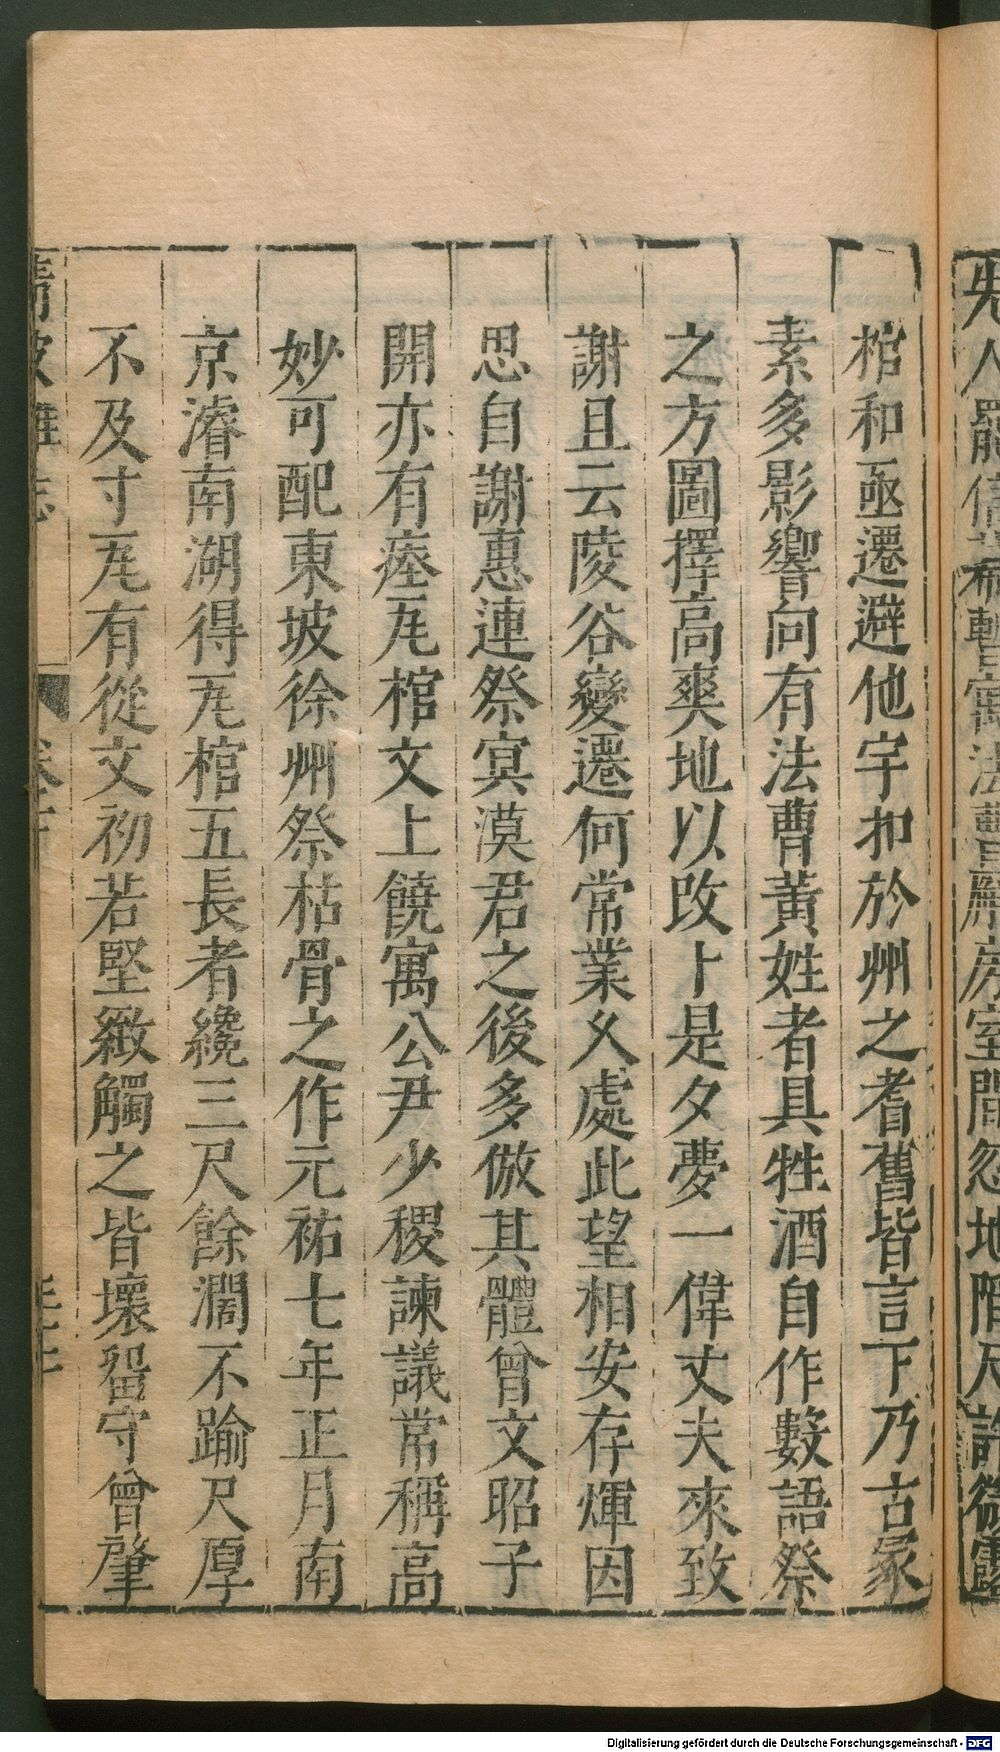 先人罷信 幹官寓法 廨房室間忽地陷尺許微露
棺和亟遷避他宇扣於州之耆舊皆言下乃古冢
素多影響向有法曹黃姓者具牲酒自作數語祭
之方圖擇高爽地以改卜是夕夢一偉丈夫來致
謝且云陵谷變遷何常業乆處此望相安存煇因
思自謝惠連祭冥漠君之後多倣其體曾文昭子
開亦有瘞瓦棺文上饒寓公尹少稷諫議常稱高
妙可配東坡徐州祭枯骨之作元祐七年正月南
京濬南湖得瓦棺五長者纔三尺餘濶不踰尺厚
不及寸瓦有從文初若堅緻觸之皆壞留守曾肇
清波雜志
卷十
Digitalisierung gefördert durch die Deutsche Forschungsgemeinschaft - DFG